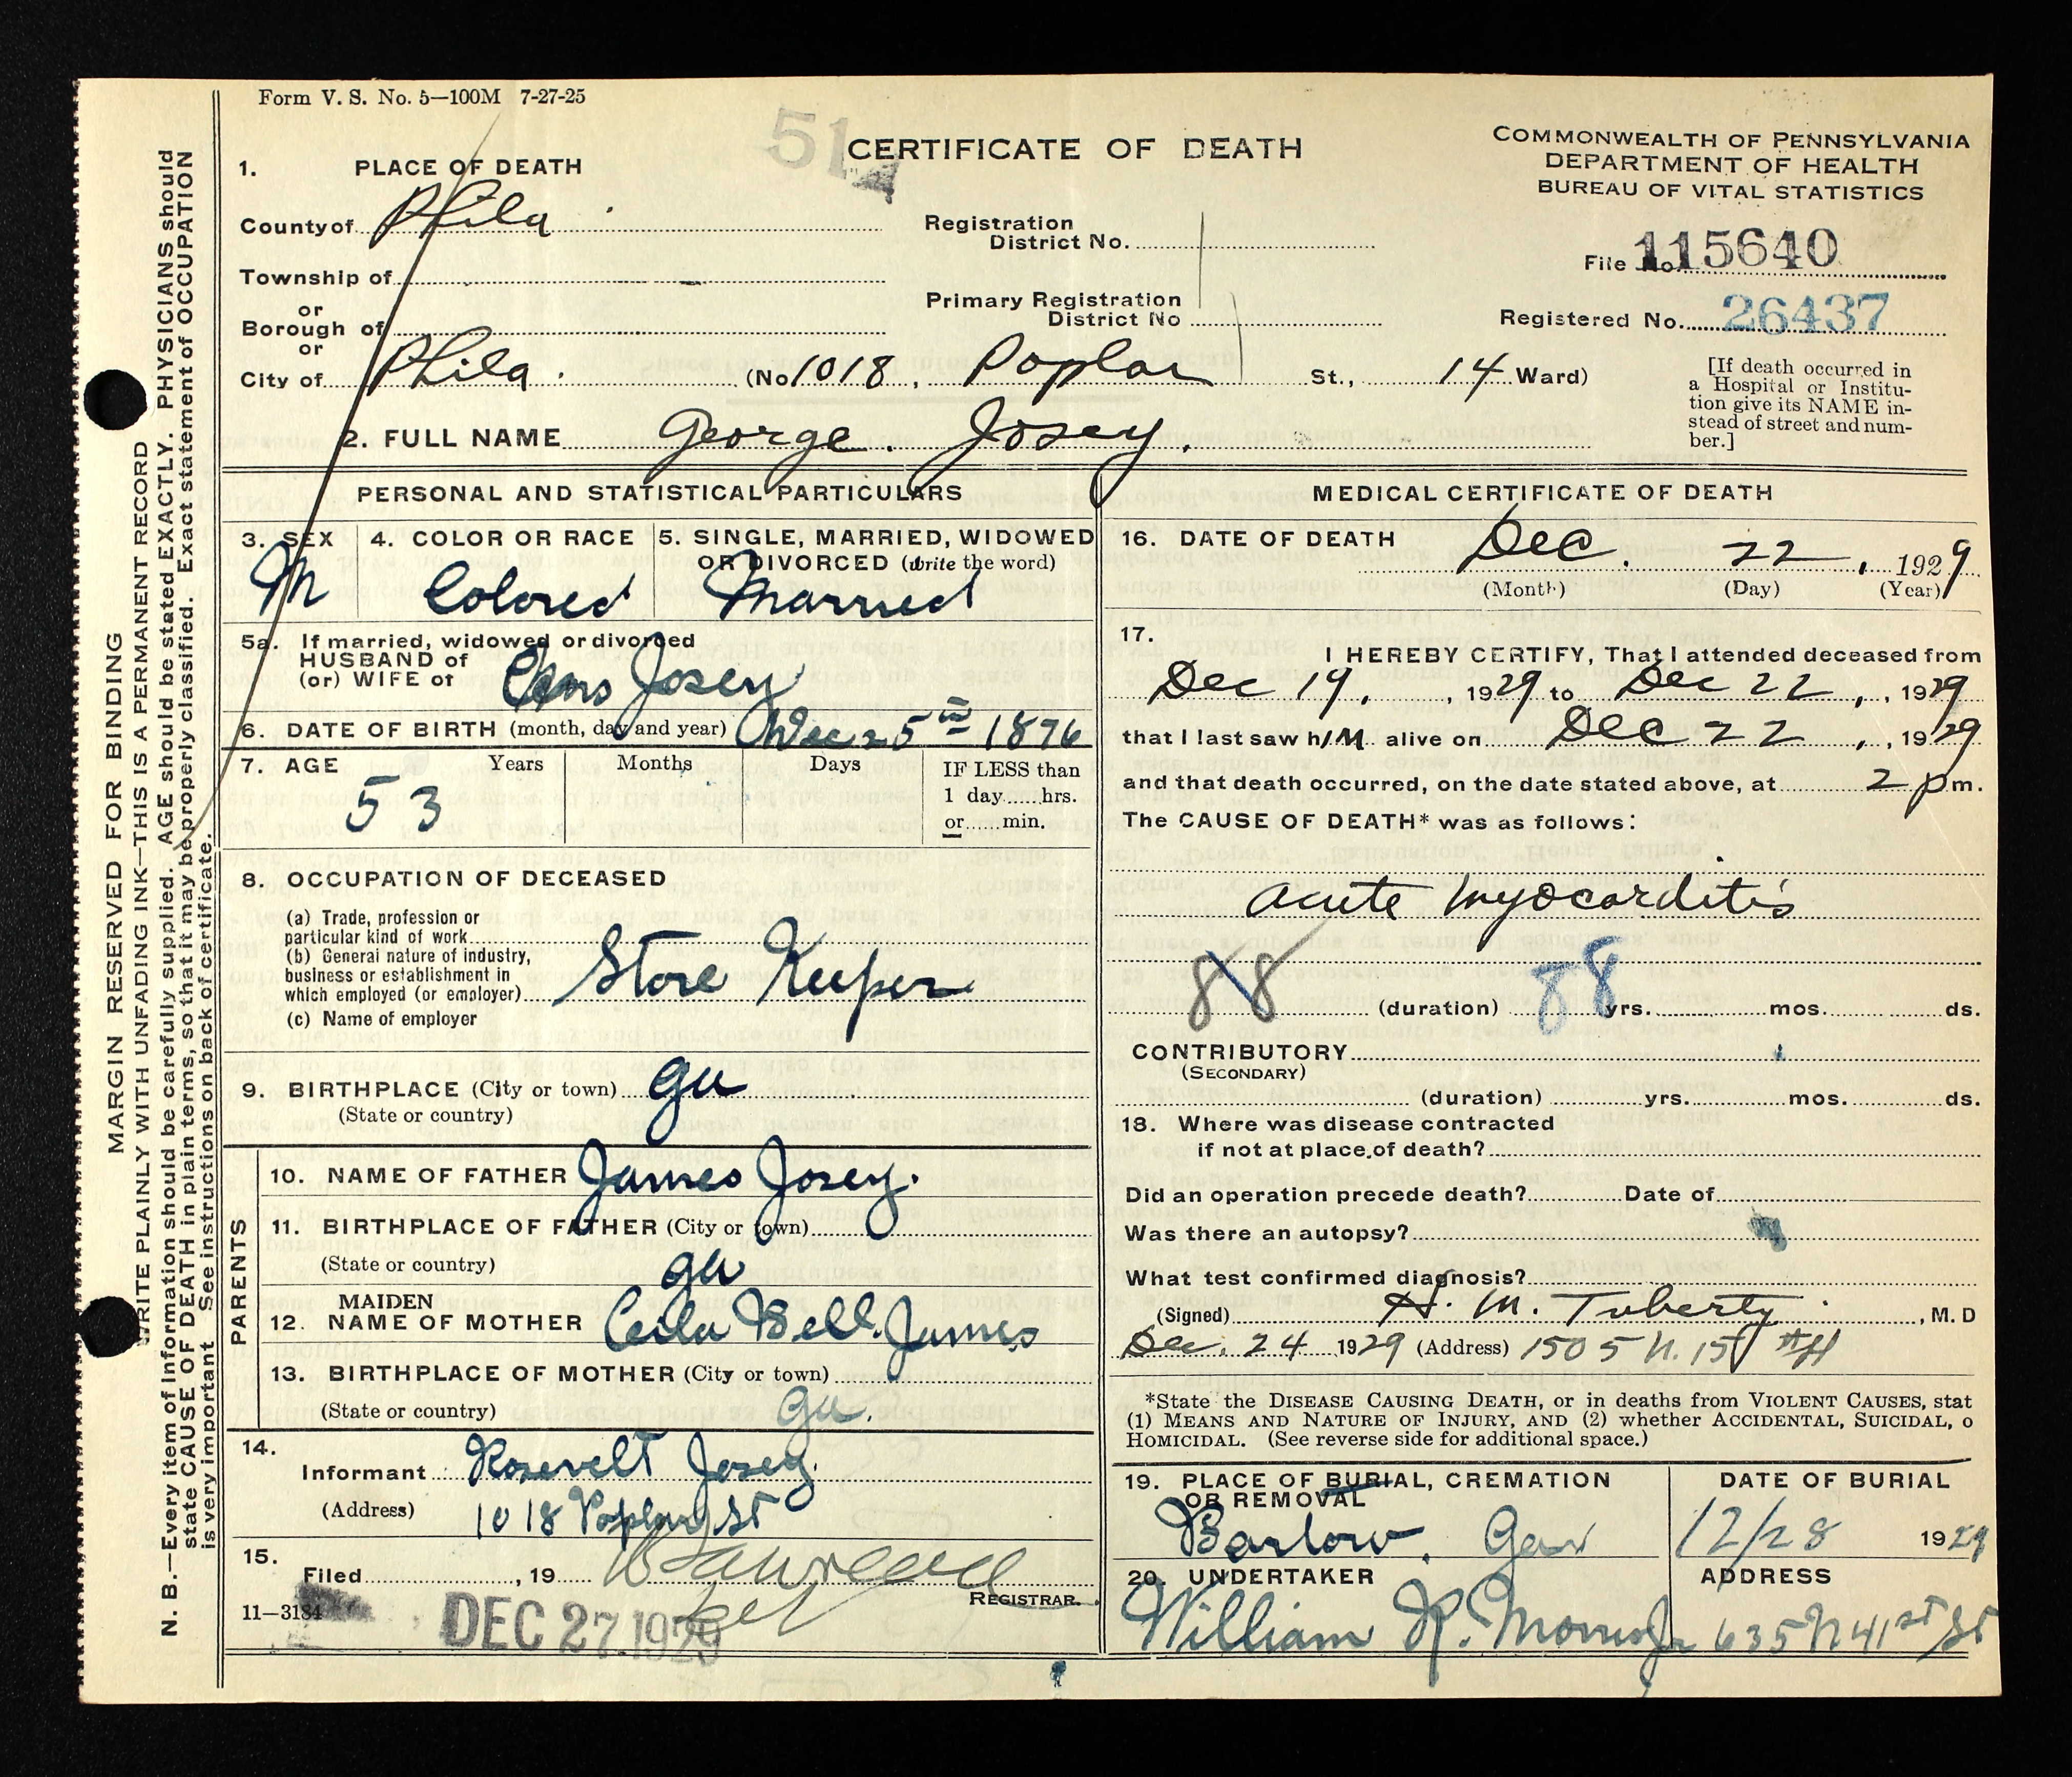 Form V. S. No. 5—100M 7-27-25
51
CERTIFICATE OF DEATH
COMMONWEALTH OF PENNSYLVANIA
DEPARTMENT OF HEALTH
BUREAU OF VITAL STATISTICS
1. PLACE OF DEATH
County of Phila
Registration
District No.
File No. 115640
Township of
or
Borough of
or
Primary Registration
District No
Registered No. 26437
City of Phila. (No 1018, Poplar St., 14 Ward)
[If death occurred in
a Hospital or Institu-
tion give its NAME in-
stead of street and num-
ber.]
2. FULL NAME George. Josey.
PERSONAL AND STATISTICAL PARTICULARS
3. SEX
M
4. COLOR OR RACE
Colored
5. SINGLE, MARRIED, WIDOWED
OR DIVORCED (write the word)
Married
5a. If married, widowed or divorced
HUSBAND of
(or) WIFE of
Josey
6. DATE OF BIRTH (month, day and year) Dec 25th 1876
7. AGE Years Months Days
53
IF LESS than
1 day......hrs.
or......min.
8. OCCUPATION OF DECEASED
(a) Trade, profession or
particular kind of work
(b) General nature of industry,
business or establishment in
which employed (or employer)
Store Keeper
(c) Name of employer
9. BIRTHPLACE (City or town) Ga
(State or country)
PARENTS
10. NAME OF FATHER James Josey.
11. BIRTHPLACE OF FATHER (City or town)
(State or country) Ga
12. MAIDEN
NAME OF MOTHER Ceila Bell. James
13. BIRTHPLACE OF MOTHER (City or town)
(State or country) Ga.
14.
Informant Rosevelt Josey.
(Address) 1018 Poplar St
15.
Filed , 19
REGISTRAR.
11—3184
DEC 27 1929
MEDICAL CERTIFICATE OF DEATH
16. DATE OF DEATH Dec. 22, 1929
(Month) (Day) (Year)
17.
I HEREBY CERTIFY, That I attended deceased from
Dec 19, , 1929 to Dec 22, , 1929
that I last saw him alive on Dec 22, , 1929
and that death occurred, on the date stated above, at 2 pm.
The CAUSE OF DEATH* was as follows:
Acute Myocarditis
88 (duration) 88 yrs. mos. ds.
CONTRIBUTORY
(SECONDARY)
(duration) yrs. mos. ds.
18. Where was disease contracted
if not at place of death?
Did an operation precede death? Date of
Was there an autopsy?
What test confirmed diagnosis?
(Signed) H. M. Tuberty, M. D
Dec. 24 1929 (Address) 1505 N. 15
*State the DISEASE CAUSING DEATH, or in deaths from VIOLENT CAUSES, stat
(1) MEANS AND NATURE OF INJURY, AND (2) whether ACCIDENTAL, SUICIDAL, o
HOMICIDAL. (See reverse side for additional space.)
19. PLACE OF BURIAL, CREMATION
OR REMOVAL
Barlow.
DATE OF BURIAL
12/28 1929
20. UNDERTAKER
William R. Morris Jr
ADDRESS
635 N 41st St
MARGIN RESERVED FOR BINDING
WRITE PLAINLY WITH UNFADING INK—THIS IS A PERMANENT RECORD
N. B.—Every item of information should be carefully supplied. AGE should be stated EXACTLY. PHYSICIANS should
state CAUSE OF DEATH in plain terms, so that it may be properly classified. Exact statement of OCCUPATION
is very important See instructions on back of certificate.